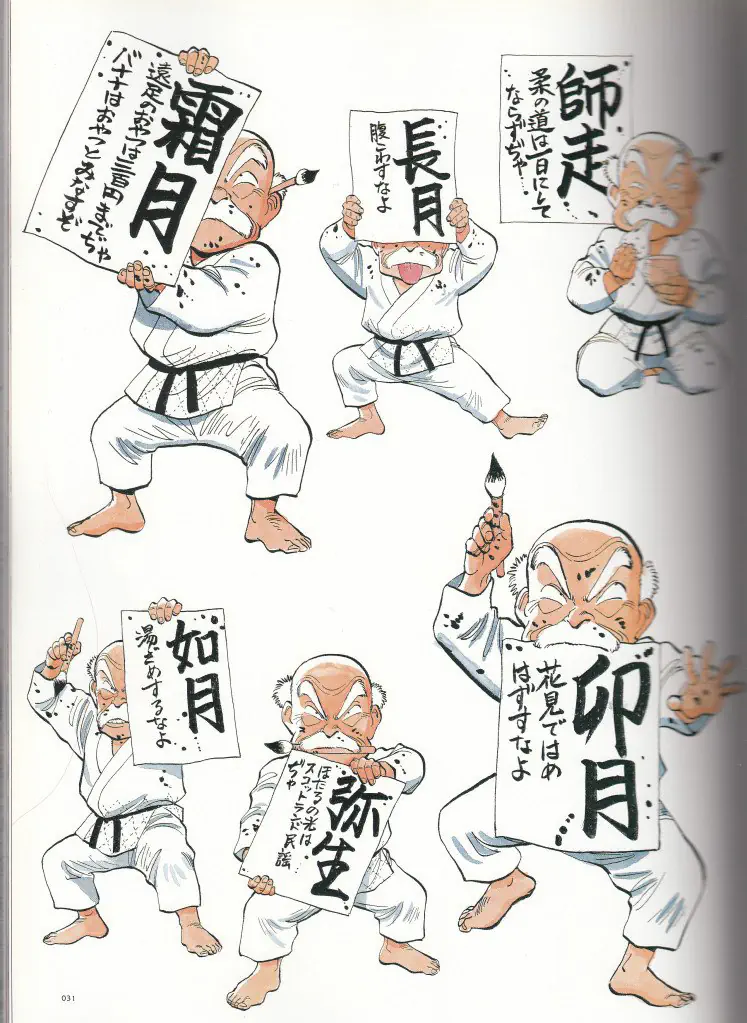 霜月
遠足のおやつは三百円までぢゃ
バナナはおやつとみなすぞ
長月
腹こわすなよ
師走
柔の道は一日にして
ならずぢゃ…
如月
湯ざめするなよ
弥生
ほたるの光は
スコットランド民謡
ぢゃ
卯月
花見ではめ
はずすなよ
031